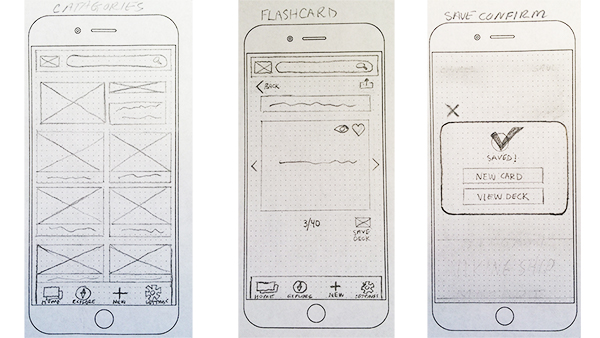 CATEGORIES
HOME EXPLORE NEW SETTINGS
FLASHCARD
BACK
3/40
SAVE
DECK
HOME EXPLORE NEW SETTINGS
SAVE CONFIRM
SAVED!
NEW CARD
VIEW DECK